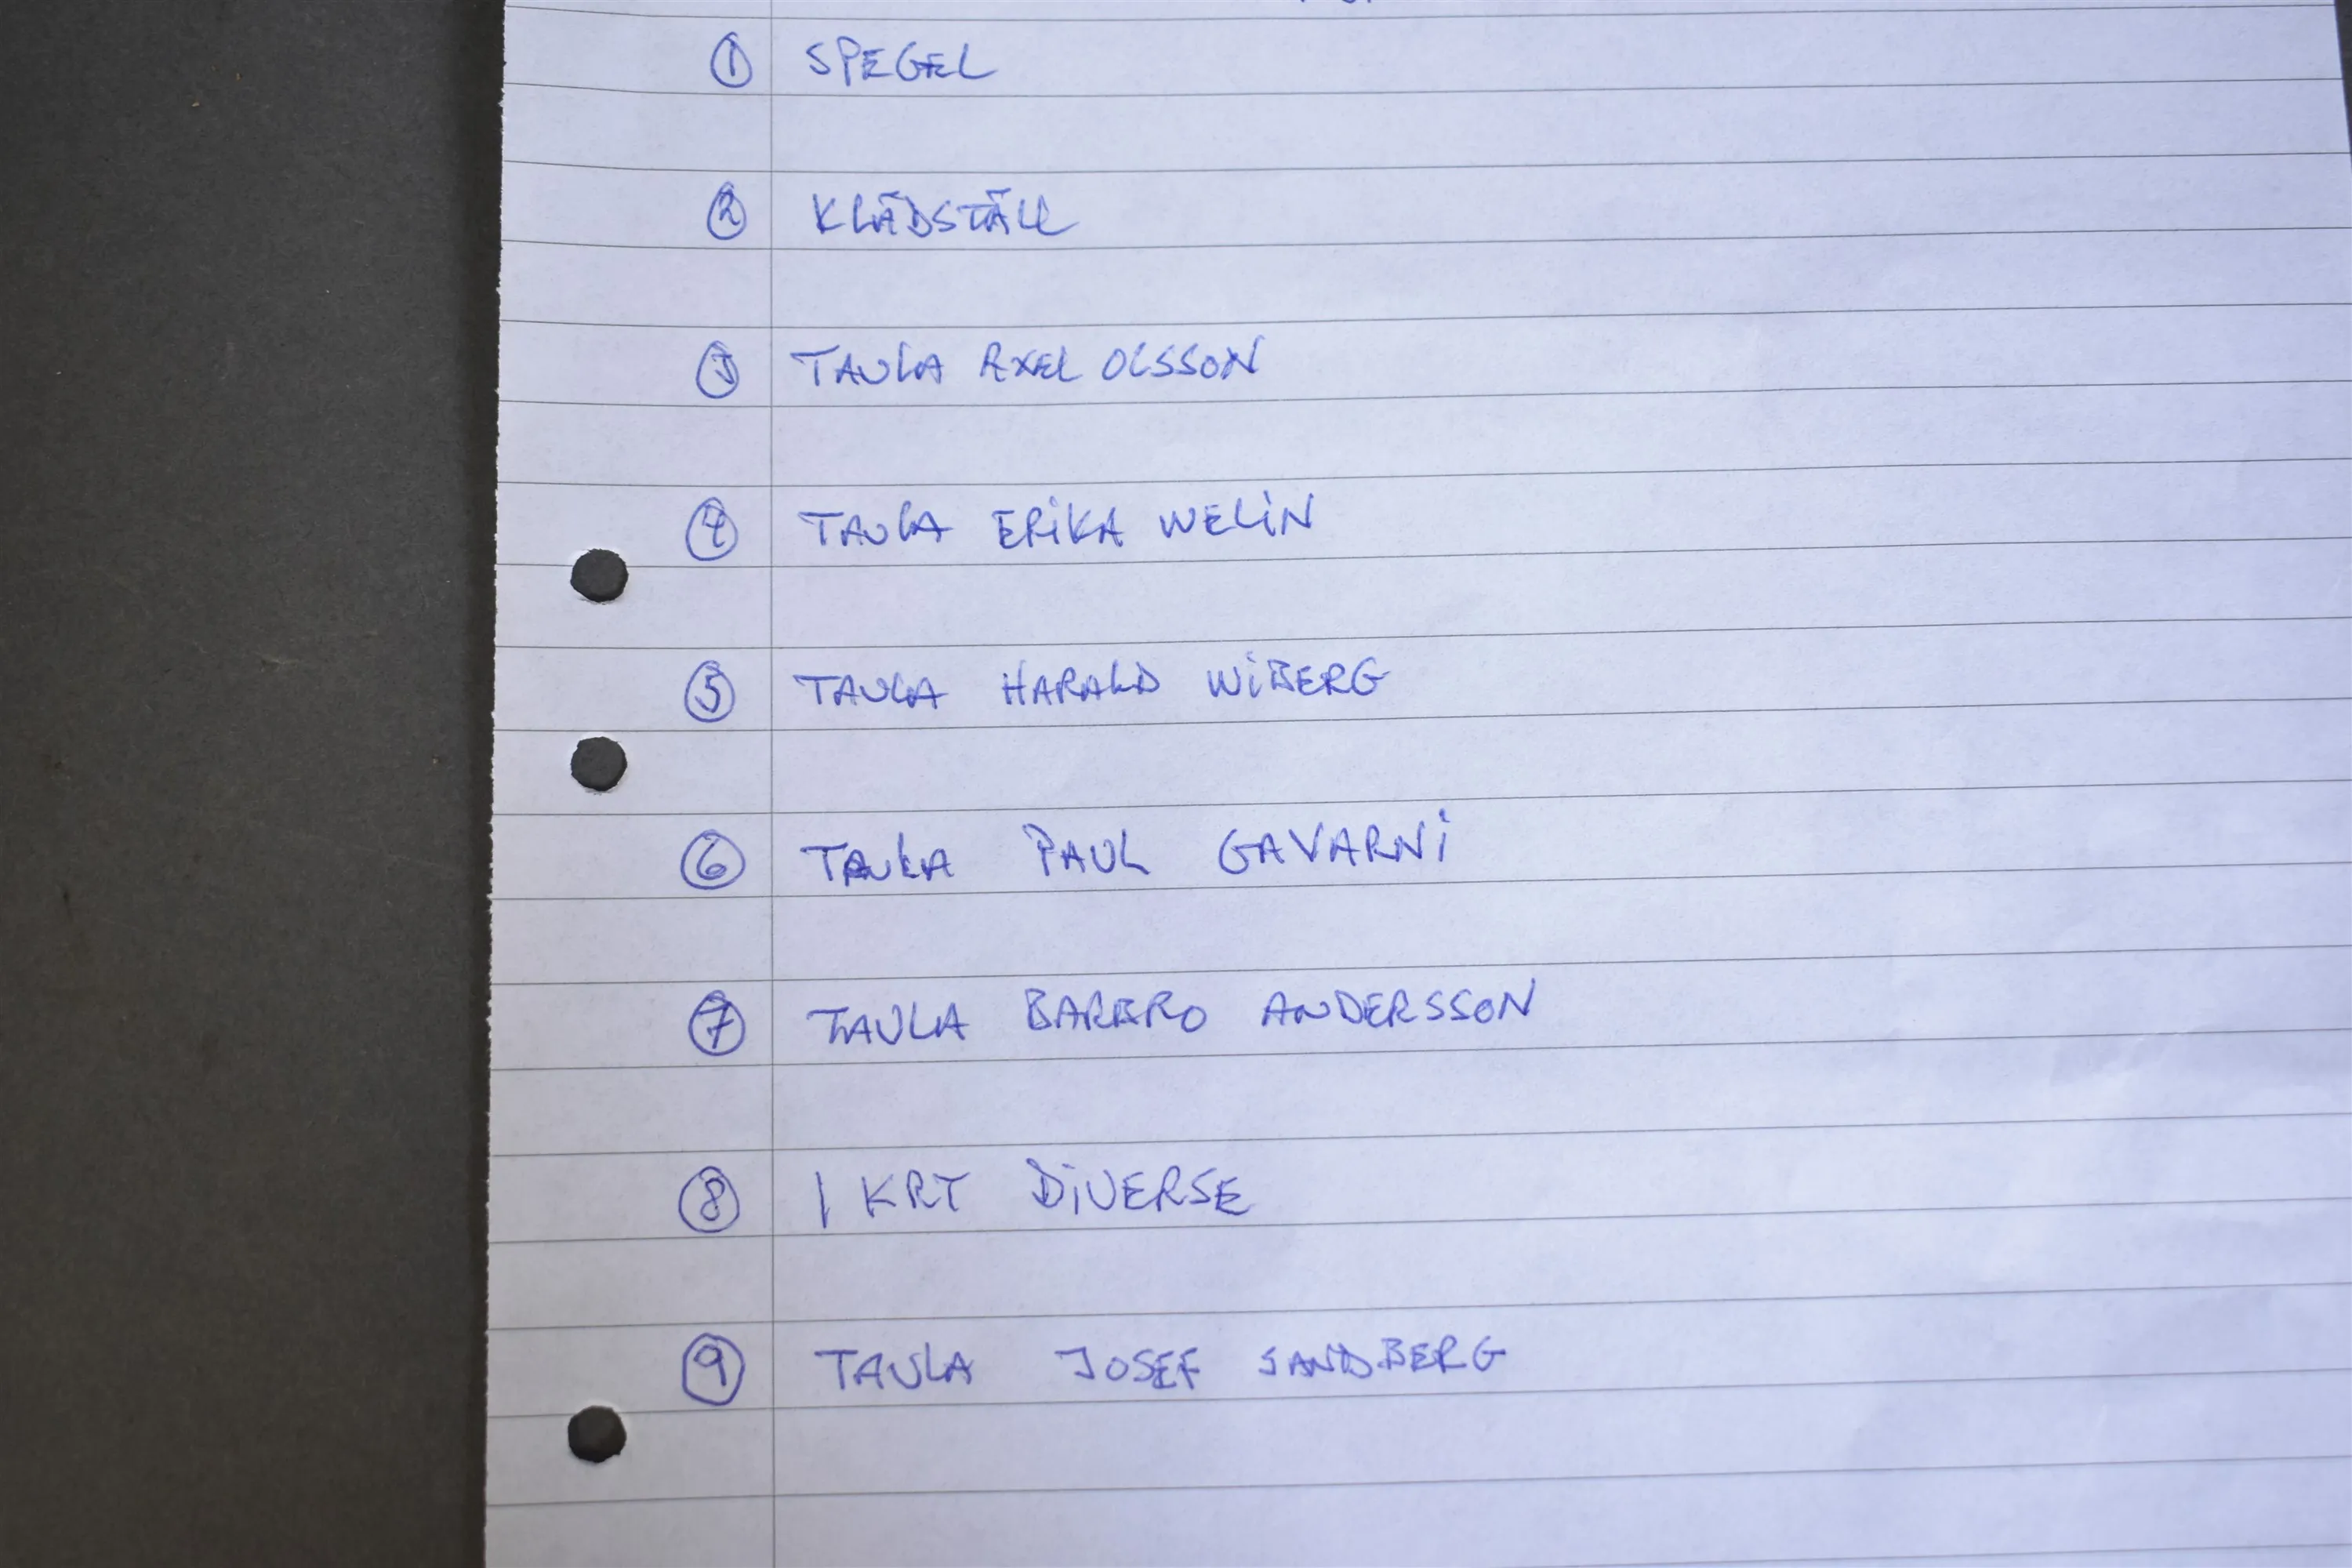 ① SPEGEL
② KLÄDSTÄLL
③ TAVLA AXEL OLSSON
④ TAVLA ERIKA WELIN
⑤ TAVLA HARALD WIBERG
⑥ TAVLA PAUL GAVARNI
⑦ TAVLA BARBRO ANDERSSON
⑧ 1 KRT DIVERSE
⑨ TAVLA JOSEF SANDBERG